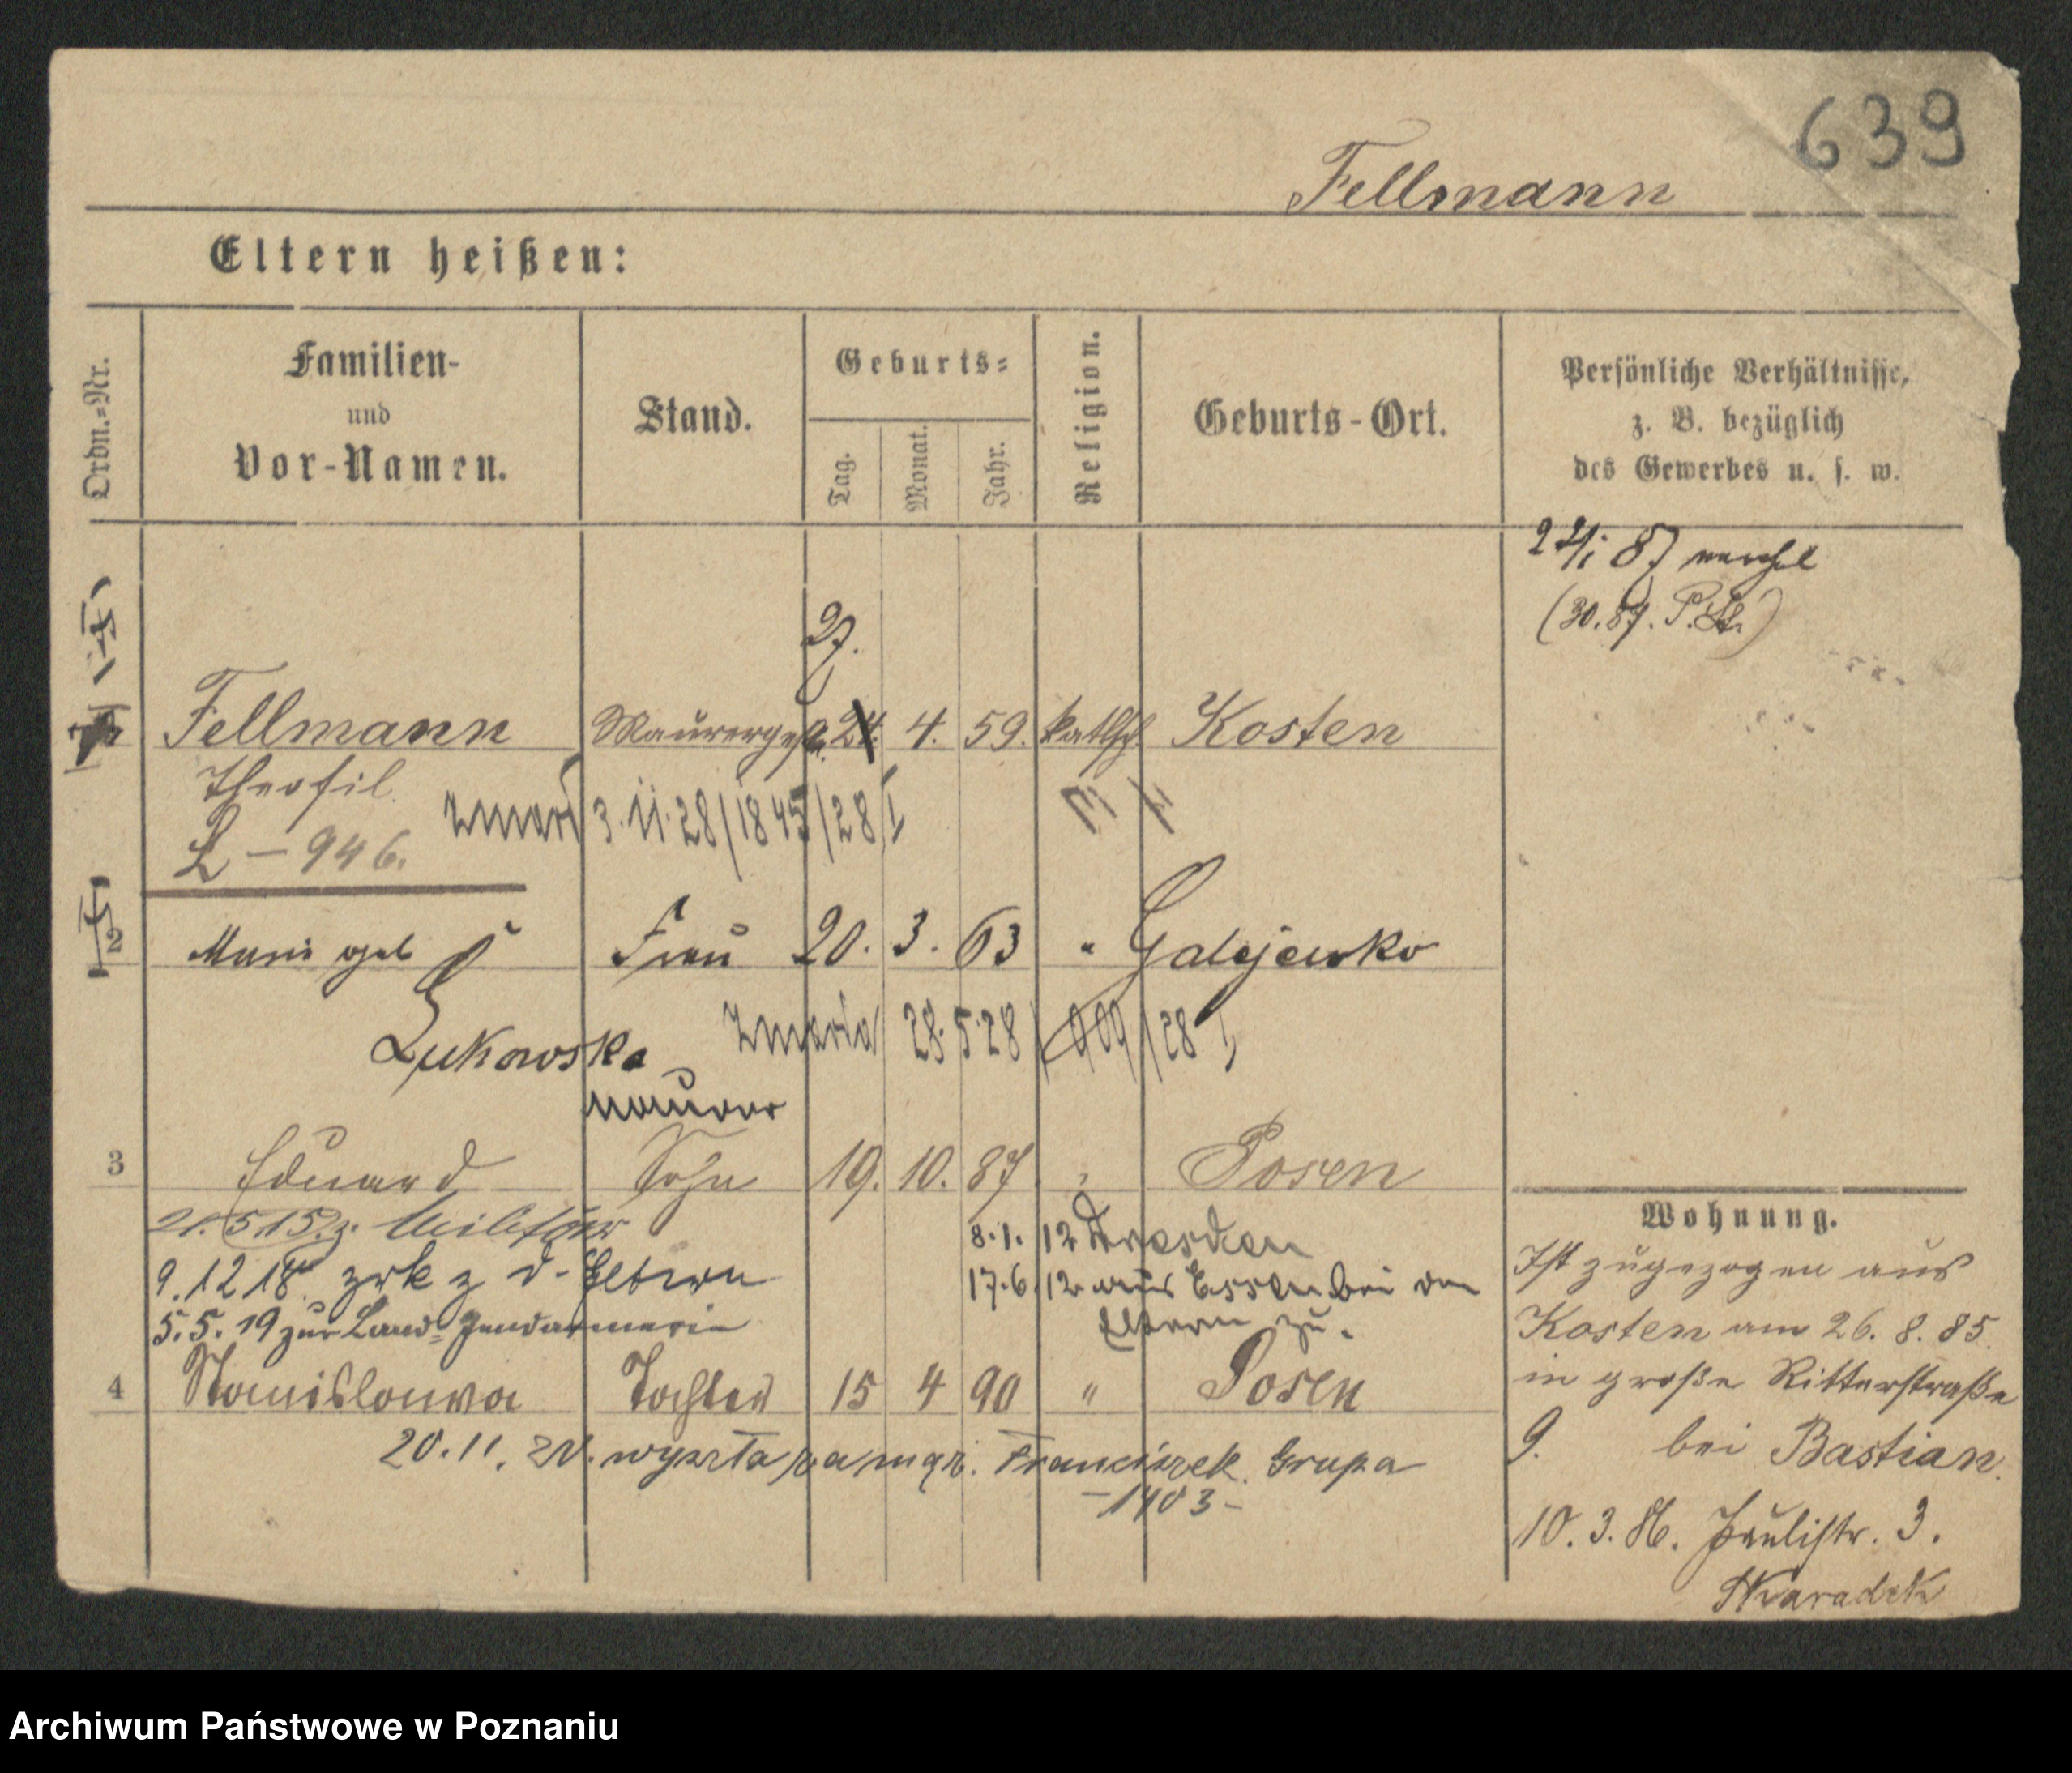 639
Fellmann
Eltern heißen:
Ordn.-Nr.
Familien-
und
Vor-Namen.
Stand.
Geburts-
Tag.
Monat.
Jahr.
Religion.
Geburts-Ort.
Persönliche Verhältnisse,
z. B. bezüglich
des Gewerbes u. s. w.
87
(30.87. P. St.)
27.
Fellmann Maurerges. 24. 4. 59. kathsch. Kosten
Theofil.
L - 946.
zmarł 3.11.28/1845/28
2 Marie geb Frau 20. 3. 63 "
Lukowska
zmarła 28.5.28 /909/28
Maurer
3 Eduard Sohn 19. 10. 87 " Posen
21.5.15. z. Militär
8.1.12 Dresden
9.12.18. zrk z d. Eltern
17.6.12 aus Essen bei den
Eltern zu.
5.5.19 zur Land-Gendarmerie
4 Stanislouwa Tochter 15 4 90 " Posen
20.11. wyszła za mąż. Franciszek Grupa
-1403-
Wohnung.
Ist zugezogen aus
Kosten am 26. 8. 85.
in große Ritterstraße
9. bei Bastian.
10. 3. 86. Paulistr. 3.
Archiwum Państwowe w Poznaniu